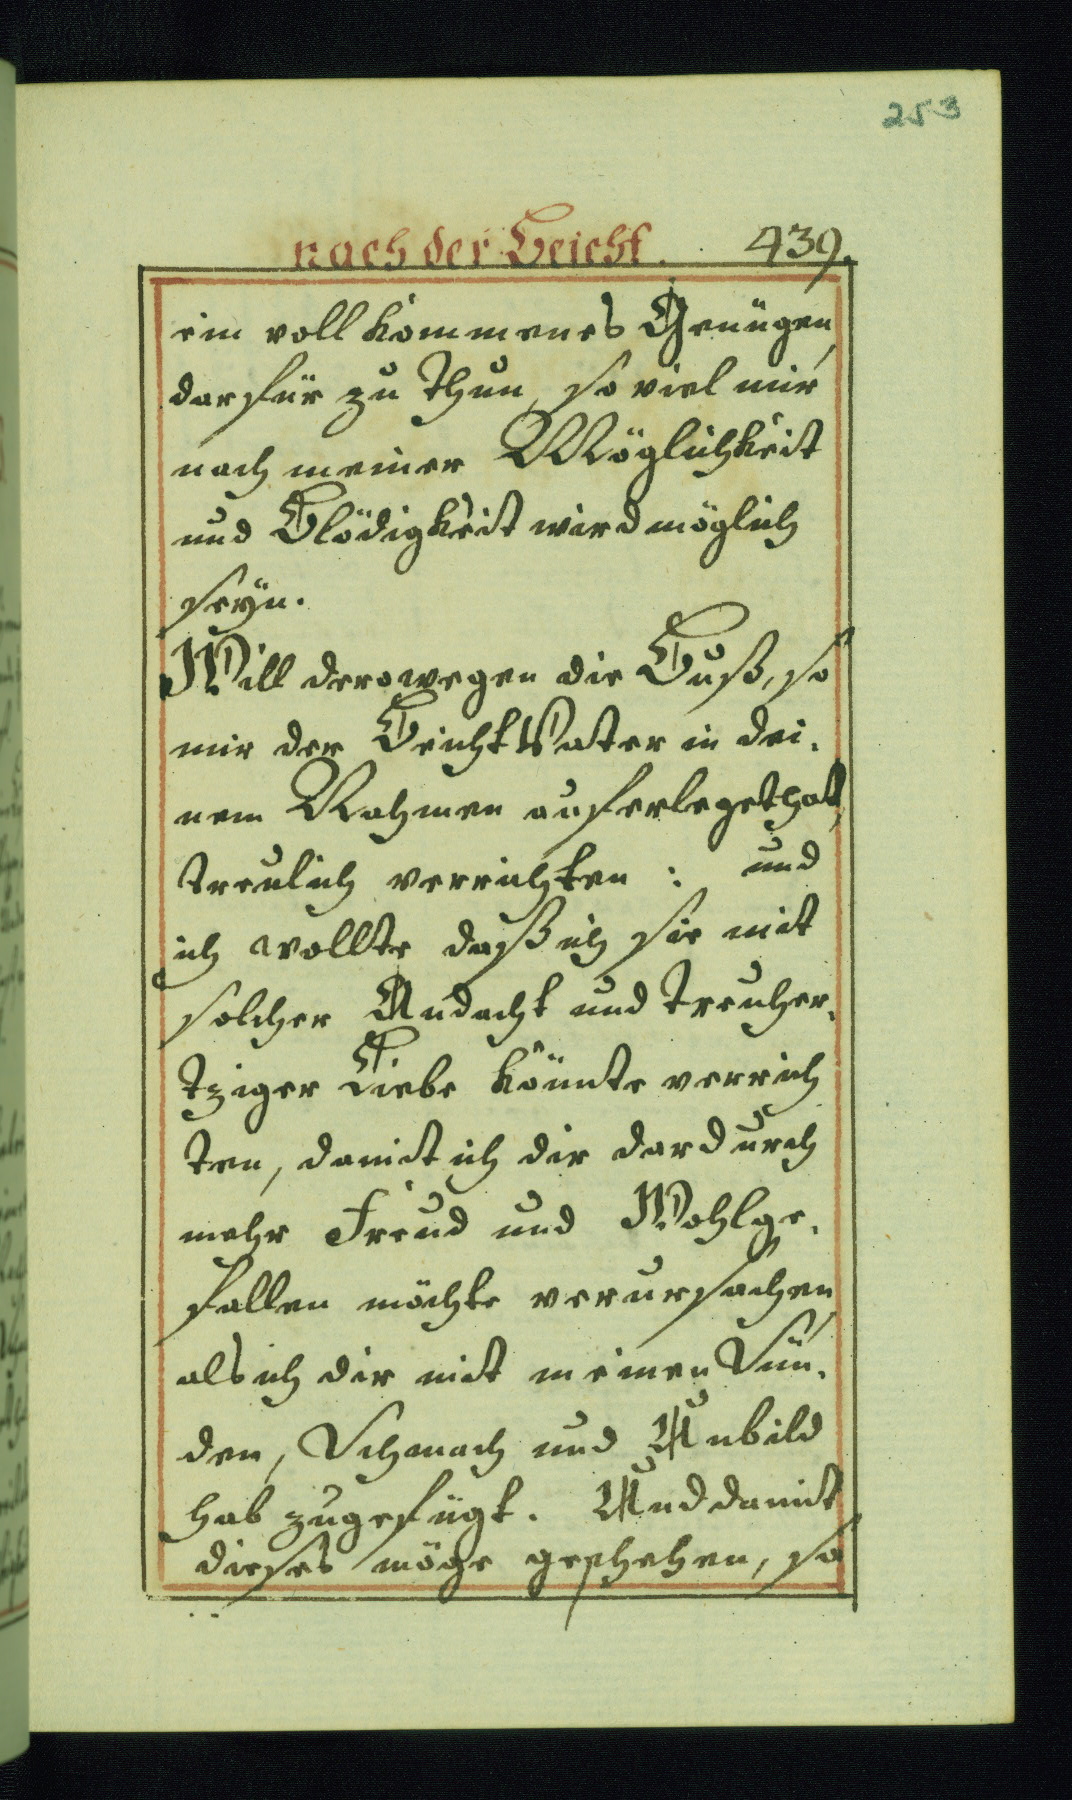 253
nach der Beicht. 439.
ein voll kommenes Genügen,
darfür zu thun, so viel mir
nach meiner Möglichkeit
und Blödigkeit wird möglich
seÿn.
Will derowegen die Buß, so
mir der Beicht Vater in dei,
nem Nahmen auferlegt hat,
treulich verrichten: und
ich wollte daß ich sie mit
solcher Andacht und treuher,
tziger Liebe könnte verrich
ten, damit ich dir dardurch
mehr Freud und Wohlge,
fallen möchte verursachen,
als ich dir mit meinen Sün,
den, Schmach und Unbild
hab zugefügt. Und damit
dieses möge geschehen, so